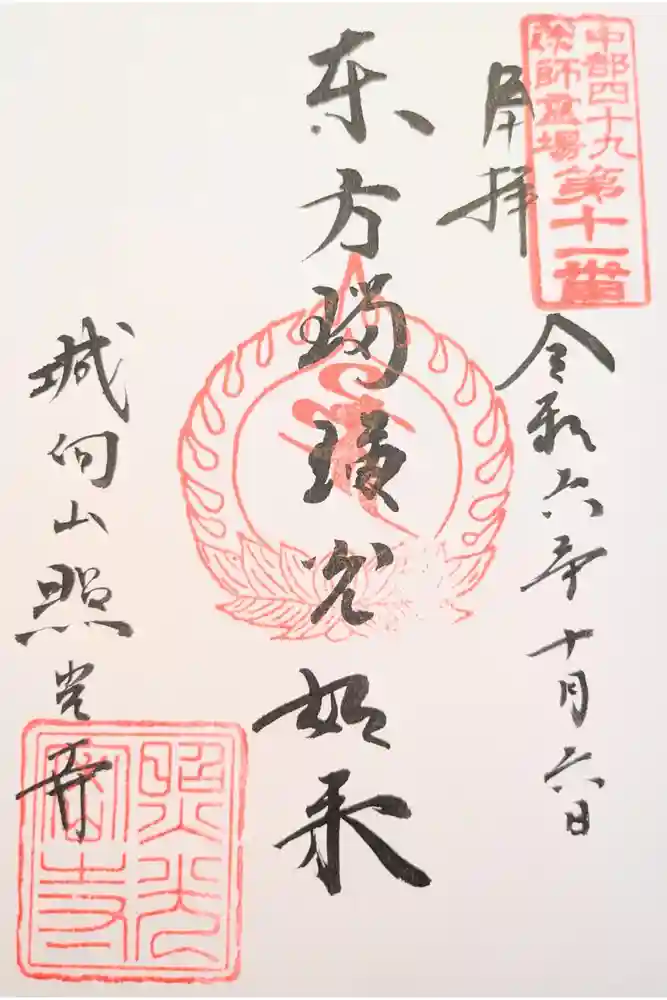 中部四十九
薬師霊場
第十一番
奉拝
令和六年十月六日
东方瑠璃光如来
城向山照光寺
照光
密寺